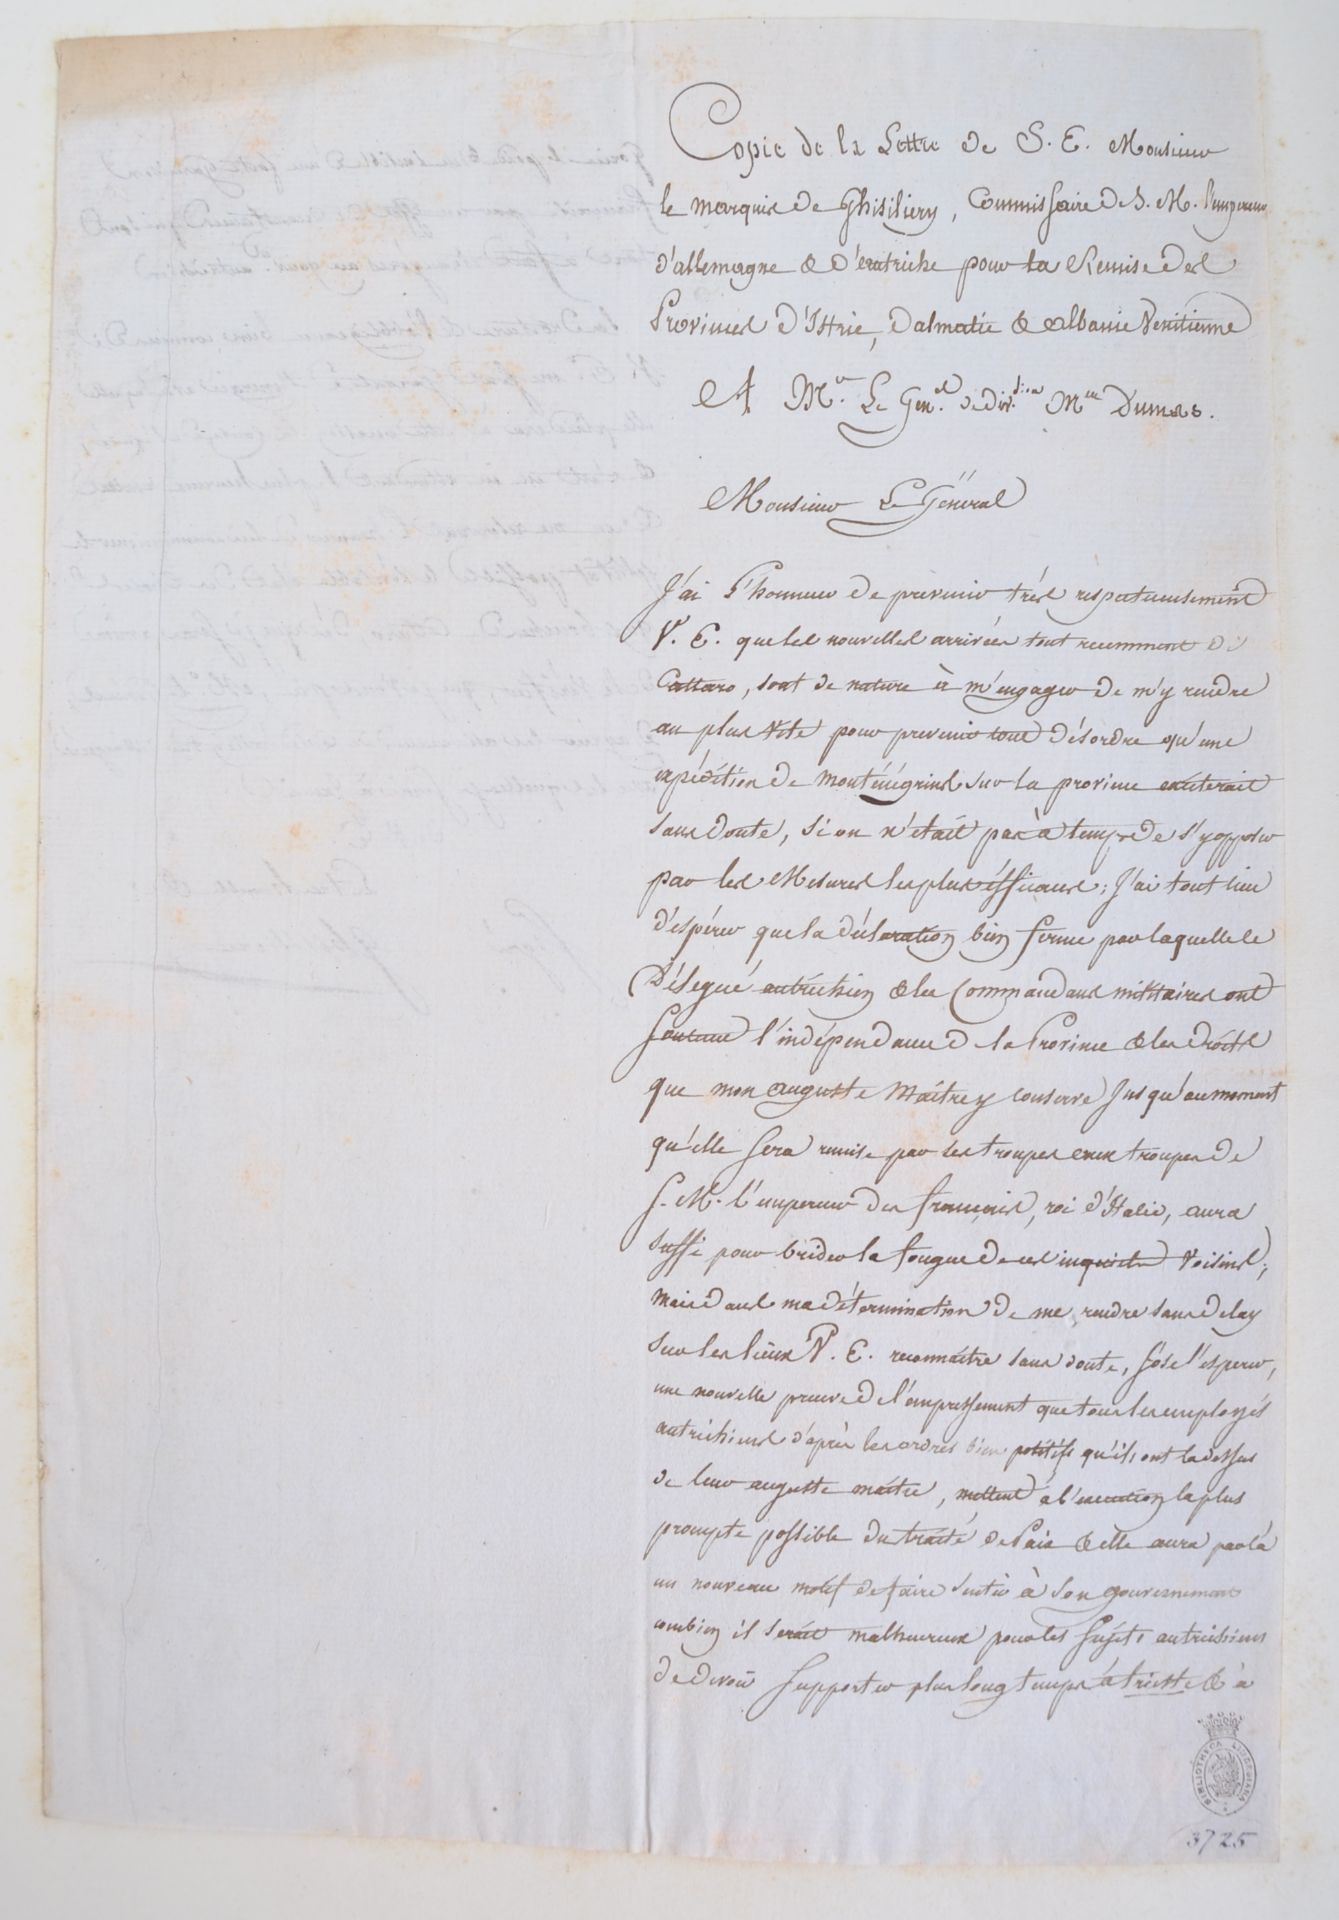 Copie de la Lettre de S. E. Monsieur
le marquis de Ghisiliery, Commissaire de S. M. l'empereur
d'allemagne & d'eutriche pour la Remise des
Provinces d'Istrie, Dalmatie & albanie Venitienne
A Mr. Le Gen.al de div.sion Mieu Dumas.
Monsieur Le Général
J'ai l'honneur de prevenir très respectueusement
V. E. que les nouvelles arrivées tout recemment de
Cattaro, sont de nature à m'engager de m'y rendre
au plus vite pour prevenir tout désordre qu'une
expédition de monténégrins sur la province exciterait
sans doute, si on n'était pas à temps de s'y opposer
par les Mesures les plus éfficaces; J'ai tout lieu
d'espérer que la déclaration bien ferme par laquelle le
Délegué autrichien & les Commandans militaires ont
soutenu l'indépendance de la Province & les droits
que mon auguste Maître y conserve Jusqu'au moment
qu'elle sera remise par ses troupes aux troupes de
S. M. l'empereur des français, roi d'Italie, aura
suffi pour brider la fougue de ces inquiets Voisins;
mais dans ma détermination de me rendre sans delay
sur les lieux V. E. reconnaître sans doute, J'ose l'esperer,
une nouvelle preuve de l'empressement que tous les employés
autrichiens d'après les ordres bien positifs qu'ils ont la dessus
de leur auguste maître, mettent à l'execution la plus
prompte possible du traité de Paix & elle aura par là
un nouveau motif de faire sentir à son gouvernement
combien il serait malheureux pour les Sujets autrichiens
de devoir supporter plus longtemps à trieste & à
BIBLIOTHECA LINDESIANA
3725